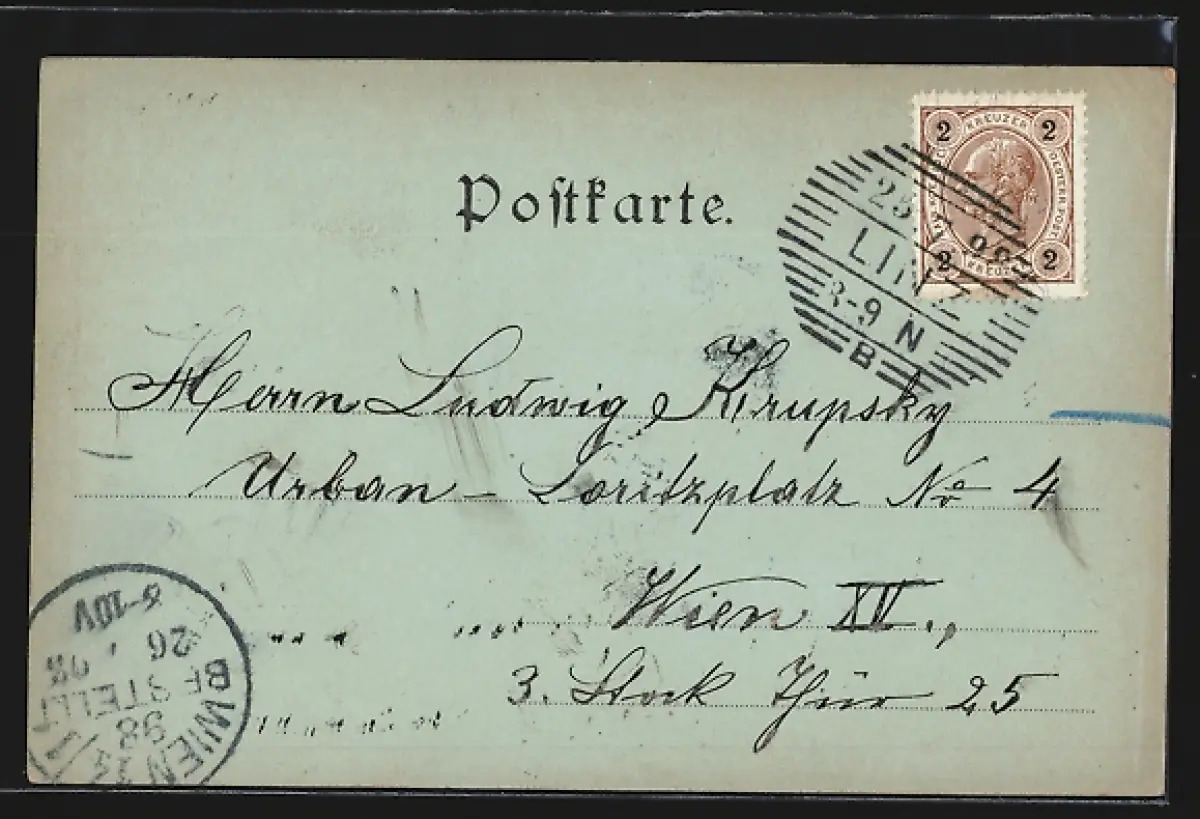 2 KREUZER 2
OESTERR. POST.
2 KREUZER 2
Postkarte.
25
LINZ
8-9 N
B
Herrn Ludwig Krupsky
Urban - Loritzplatz No 4
Wien XV.,
3. Stock Thür 25
WIEN
BESTELLT
26 98
8-10V
98